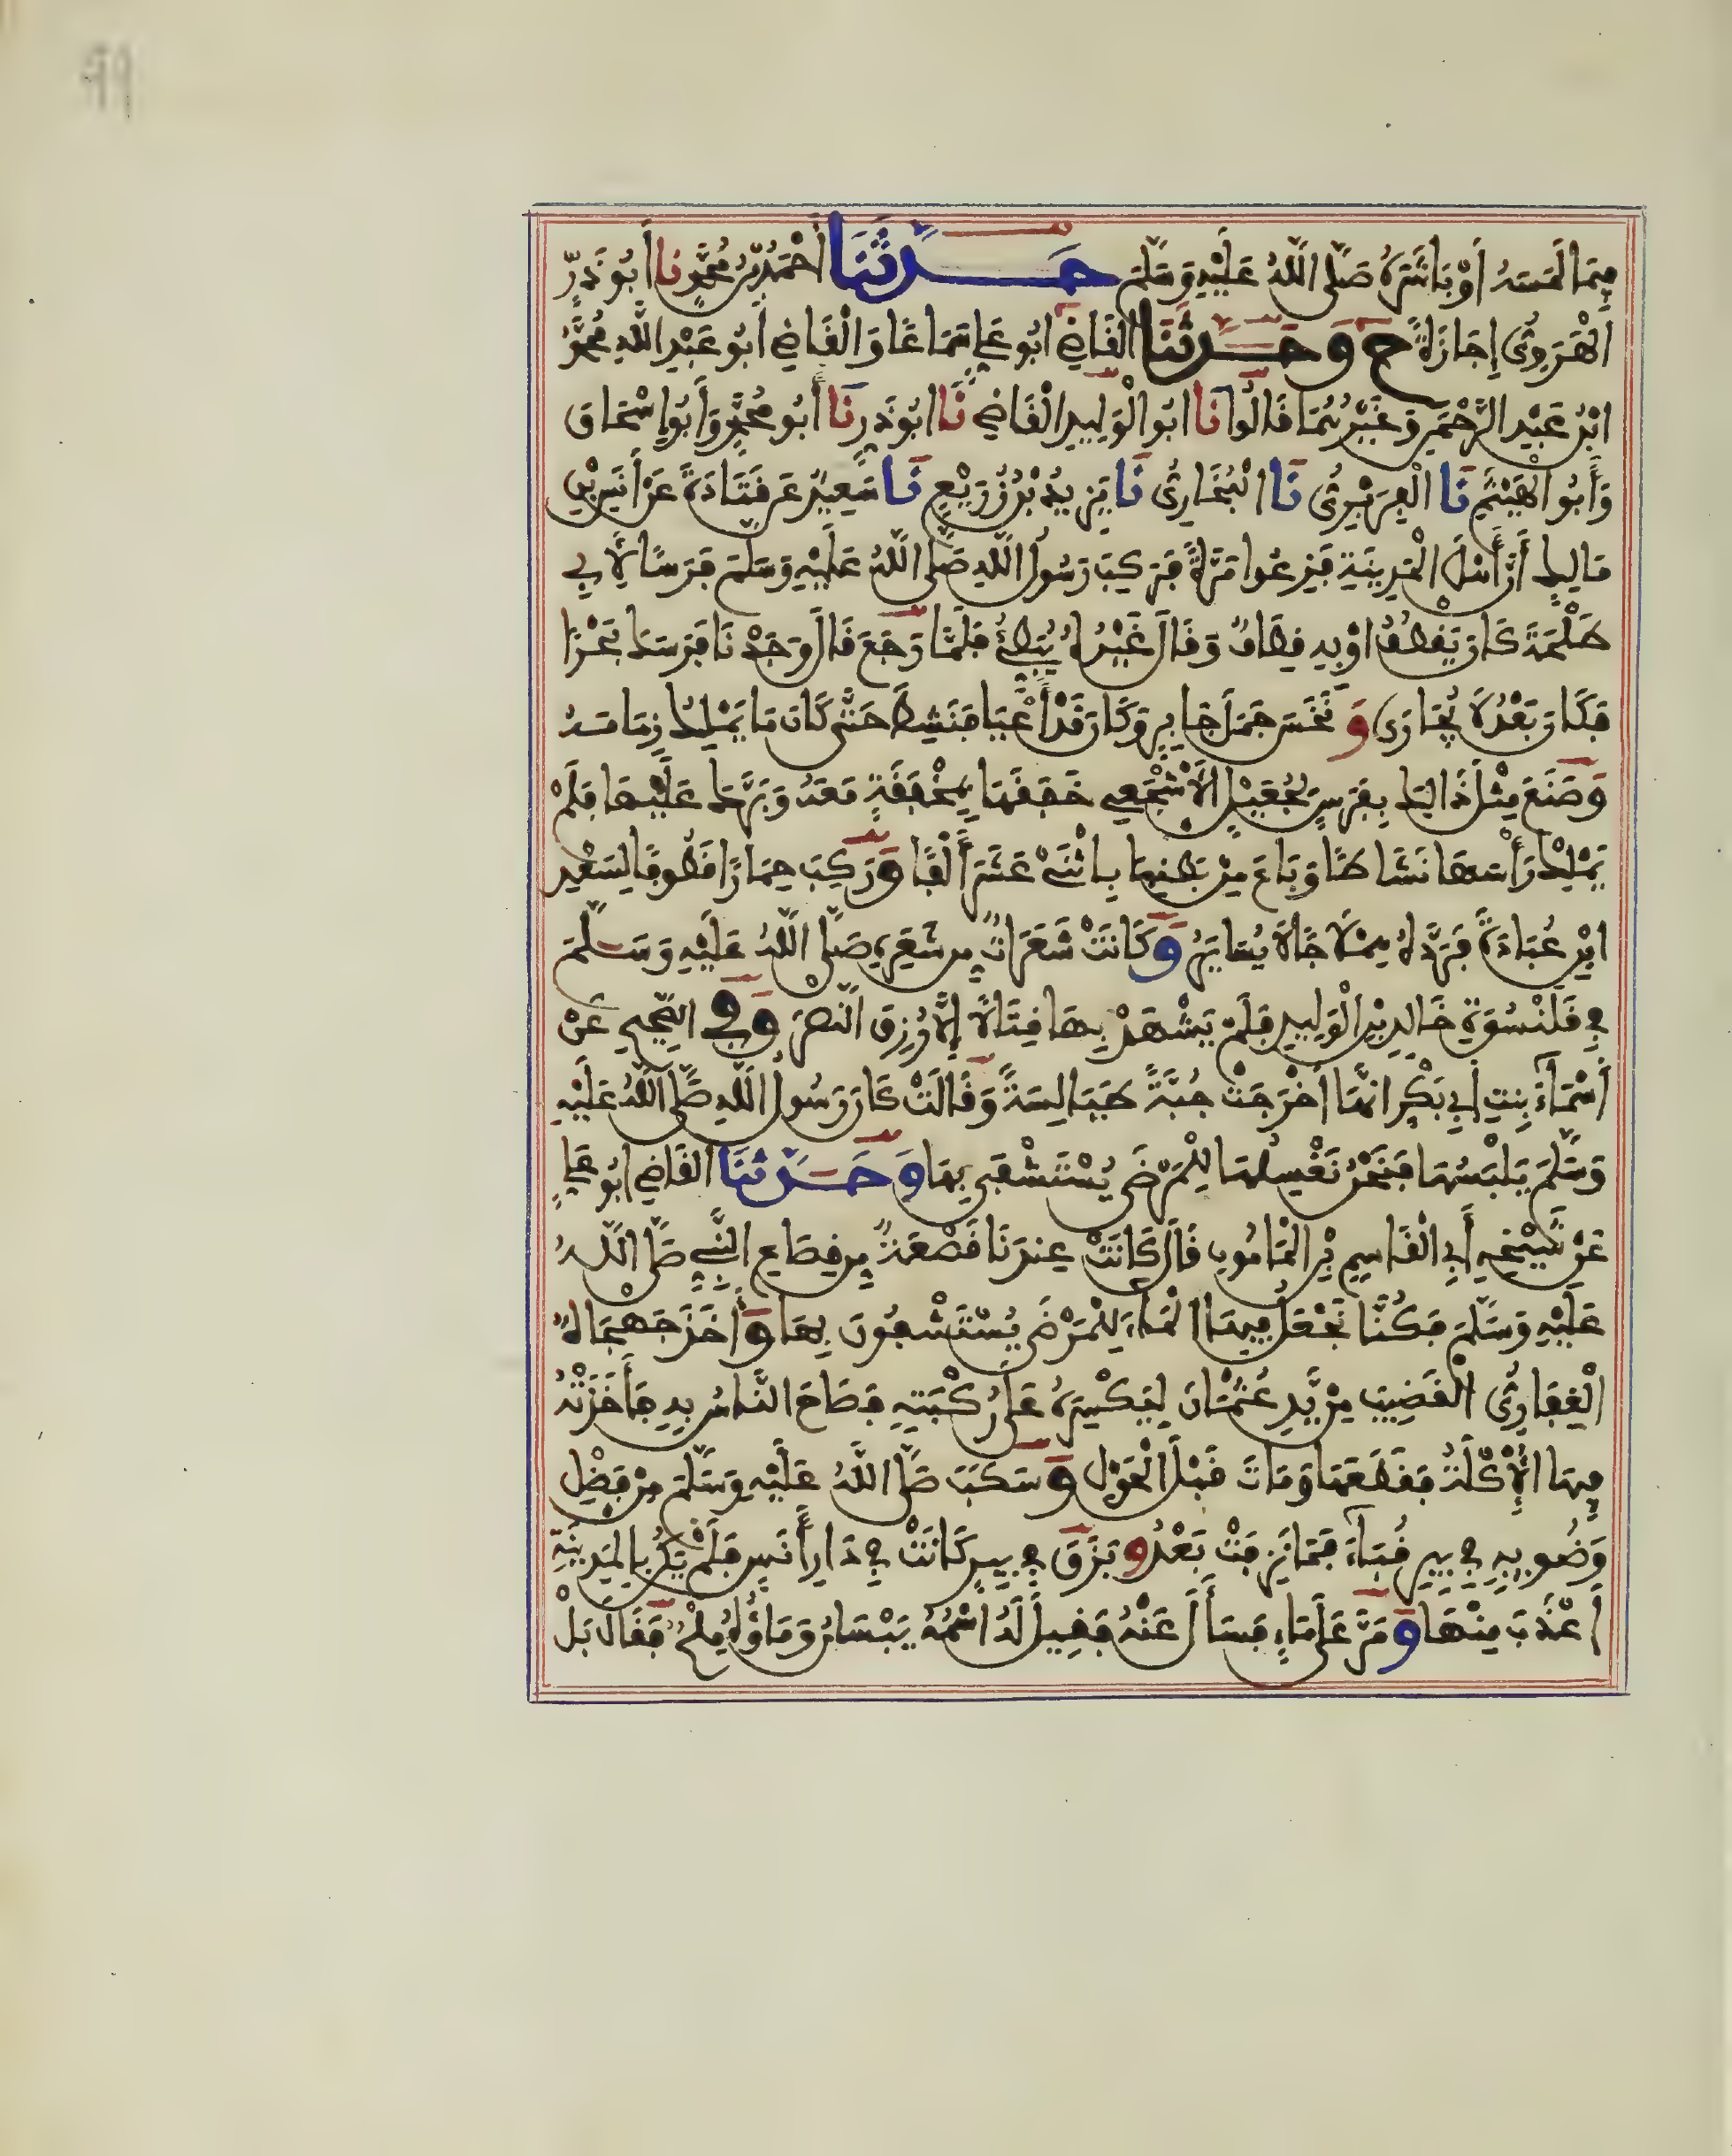 فِيمَا لَمَسَهُ أَوْ بَاشَرَهُ صَلَّى اللَّهُ عَلَيْهِ وَسَلَّمَ حَدَّثَنَا أَحْمَدُ بْنُ مُحَمَّدٍ نا أَبُو ذَرٍّ
الْهَرَوِيُّ إِجَازَةً ح وَحَدَّثَنَا الْقَاضِي أَبُو عَلِيٍّ سَمَاعًا وَالْقَاضِي أَبُو عَبْدِ اللَّهِ مُحَمَّدُ
ابْنُ عَبْدِ الرَّحْمَنِ وَغَيْرُهُمَا قَالُوا نَا أَبُو الْوَلِيدِ الْقَاضِي نَا أَبُو ذَرٍّ نَا أَبُو مُحَمَّدٍ وَأَبُو إِسْحَاقَ
وَأَبُو الْهَيْثَمِ نَا الْفِرَبْرِيُّ نَا الْبُخَارِيُّ نَا يَزِيدُ بْنُ زُرَيْعٍ نَا سَعِيدٌ عَنْ قَتَادَةَ عَنْ أَنَسِ بْنِ
مَالِكٍ أَنَّ أَهْلَ الْمَدِينَةِ فَزِعُوا مَرَّةً فَرَكِبَ رَسُولُ اللَّهِ صَلَّى اللَّهُ عَلَيْهِ وَسَلَّمَ فَرَسًا لِأَبِي
طَلْحَةَ كَانَ يَقْطُفُ أَوْ بِهِ قِطَافٌ وَقَالَ غَيْرُهُ يُبَطَّأُ فَلَمَّا رَجَعَ قَالَ وَجَدْنَا فَرَسَكَ بَحْرًا
فَكَانَ بَعْدُ لَا يُجَارَى وَنَخَسَ جَمَلَ جَابِرٍ وَكَانَ قَدْ أَعْيَا فَنَشِطَ حَتَّى كَانَ مَا يَمْلِكُ زِمَامَهُ
وَصَنَعَ مِثْلَ ذَالِكَ بِفَرَسٍ لِجُعَيْلٍ الْأَشْجَعِي خَفَقَهَا بِمِخْفَقَةٍ مَعَهُ وَبَرَّكَ عَلَيْهَا فَلَمْ
يَمْلِكْ رَأْسَهَا نَشَاطًا وَبَاعَ مِنْ بَطْنِهَا بِاثْنَيْ عَشَرَ أَلْفًا وَرَكِبَ حِمَارًا قَطُوفًا لِسَعْدِ
ابْنِ عُبَادَةَ فَرَدَّهُ هِمْلَاجًا لَا يُسَايَرُ وَكَانَتْ شَعَرَاتٌ مِنْ شَعَرِهِ صَلَّى اللَّهُ عَلَيْهِ وَسَلَّمَ
فِي قَلَنْسُوَةِ خَالِدِ بْنِ الْوَلِيدِ فَلَمْ يَشْهَدْ بِهَا قِتَالًا إِلَّا رُزِقَ النَّصْرَ وَفِي الصَّحِيحِ عَنْ
أَسْمَاءَ بِنْتِ أَبِي بَكْرٍ أَنَّهَا أَخْرَجَتْ جُبَّةً طَيَالِسَةً وَقَالَتْ كَانَ رَسُولُ اللَّهِ صَلَّى اللَّهُ عَلَيْهِ
وَسَلَّمَ يَلْبَسُهَا فَنَحْنُ نَغْسِلُهَا لِلْمَرْضَى يُسْتَشْفَى بِهَا وَحَدَّثَنَا الْقَاضِي أَبُو عَلِيٍّ
عَنْ شَيْخِهِ أَبِي الْقَاسِمِ بْنِ الْمَأْمُونِ قَالَ كَانَتْ عِنْدَنَا قَصْعَةٌ مِنْ قِصَاعِ النَّبِيِّ صَلَّى اللَّهُ
عَلَيْهِ وَسَلَّمَ فَكُنَّا نَجْعَلُ فِيهَا الْمَاءَ لِلْمَرْضَى يَسْتَشْفُونَ بِهَا وَأَخَذَ جَهْجَاهُ
الْغِفَارِيُّ الْقَضِيبَ مِنْ يَدِ عُثْمَانَ لِيَكْسِرَهُ عَلَى رُكْبَتِهِ فَصَاحَ النَّاسُ بِهِ فَأَخَذَتْهُ
فِيهَا الْأَكِلَةُ فَقَطَعَهَا وَمَاتَ قَبْلَ الْحَوْلِ وَسَكَبَ صَلَّى اللَّهُ عَلَيْهِ وَسَلَّمَ مِنْ فَضْلِ
وَضُوئِهِ فِي بِيرِ قُبَاءَ فَمَا نَزَفَتْ بَعْدُ وَبَزَقَ فِي بِيرٍ كَانَتْ فِي دَارِ أَنَسٍ فَلَمْ يَكُنْ بِالْمَدِينَةِ
أَعْذَبَ مِنْهَا وَمَرَّ عَلَى مَاءٍ فَسَأَلَ عَنْهُ فَقِيلَ لَهُ اسْمُهُ بَيْسَانُ وَمَاؤُهُ مِلْحٌ فَقَالَ بَلْ